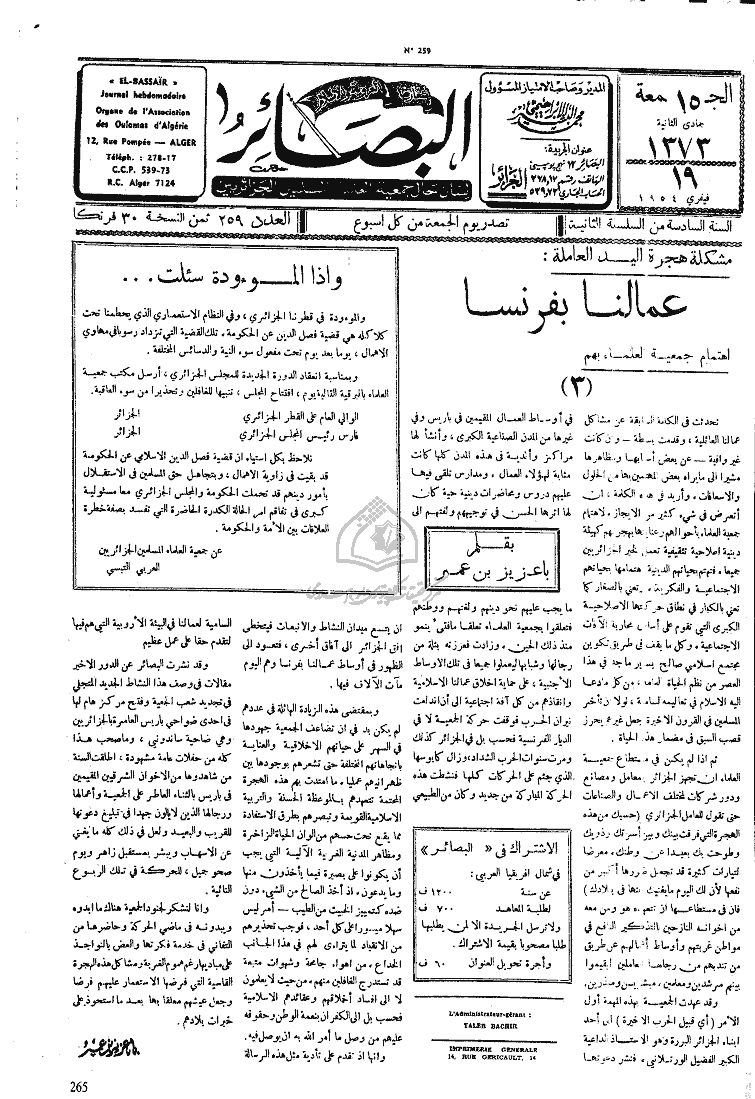 N° 259
« EL-BASSAÏR »
Journal hebdomadaire
Organe de l'Association
des Oulomas d'Algérie
12, Rue Pompée — ALGER
Téléph. : 278-17
C.C.P. 539-73
R.C. Alger 7124
البصائر
لسان حال جمعية العلماء المسلمين الجزائريين
المدير وصاحب الامتياز المسؤول
محمد البشير الإبراهيمي
عنوان الجريدة:
الجزائر
الجمعة
١٥
جمادى الثانية
١٣٧٣
١٩
فيفري ١٩٥٤
السنة السادسة من السلسلة الثانية
تصدر يوم الجمعة من كل اسبوع
العدد ٢٥٩ ثمن النسخة ٣٠ فرنكا
مشكلة هجرة اليد العاملة :
عمالنا بفرنسا
اهتمام جمعية العلماء بهم
(٣)
تحدثت في الكلمة السابقة عن مشاكل
عمالنا العائلية ، وقدمت بسطة – وان كانت
غير وافية – عن بعض أسبابها ومظاهرها
مشيرا الى ما يراه بعض المهتمين بها من الحلول
والاسعافات . وأريد في هذه الكلمة ، ان
أتعرض في شيء كثير من الايجاز لاهتمام
جمعية العلماء بأحوالهم وعنايتها بهجرتهم كهيئة
دينية اصلاحية تثقيفية تعمل لخير الجزائريين
جميعا . فتهتم بحياتهم الدينية اهتمامها بحياتهم
الاجتماعية والفكرية . تعني بالصغار كما
تعني بالكبار في نطاق حركتها الاصلاحية
الكبرى التي تقوم على أساس محاربة الآفات
الاجتماعية . وكل ما يقف في طريق تكوين
مجتمع اسلامي صالح يساير ما جد في هذا
العصر من نظم الحياة العامة ، من كل ما دعا
اليه الاسلام في تعاليمه السامية . لولا ان تأخر
المسلمين في القرون الاخيرة جعل غيرهم يحرز
قصب السبق في مضمار هذه الحياة .
ثم اذا لم يكن في مستطاع جمعية
العلماء ان تجهز الجزائر بمعامل ومصانع
ودور شركات لمختلف الاعمال والصناعات
حتى تقول للعامل الجزائري (حسبك من هذه
الهجرة التي فرقت بينك وبين أسرتك وذويك
وطوحت بك بعيدا عن وطنك . معرضا
لتيارات كثيرة قد تجعل ضررها أكثر من
نفعها لأن لك اليوم ما يغنيك عنها في بلادك)
فان في مستطاعها ان تتعهده هو ومن معه
من اخوانه النازحين بالتذكير النافع في
مواطن غربتهم وأوساط أشغالهم عن طريق
من تنتدبهم من رجالها العاملين ليقيموا
بينهم مرشدين ومعلمين ، مبشرين ومنذرين .
وقد عهدت الجمعية بهذه المهمة أول
الأمر (أي قبيل الحرب الاخيرة) الى أحد
ابناء الجزائر البررة وهو الاستاذ الداعية
الكبير الفضيل الورتلاني ، فنشر دعوتها
في أوساط العمال المقيمين في باريس وفي
غيرها من المدن الصناعية الكبرى ، وأنشأ لها
مراكز وأندية في هذه المدن كلها كانت
مثابة لهؤلاء العمال ، ومدارس تلقى فيها
عليهم دروس ومحاضرات دينية حية كان
لها اثرها الحسن في توجيههم ولفتهم الى
بقلم
باعزيز بن عمر
ما يجب عليهم نحو دينهم ولغتهم ووطنهم
فتعلقوا بجمعية العلماء تعلقا ما فتئ ينمو
منذ ذلك الحين . وزادت فعززته بثلة من
رجالها وشبابها ليعملوا جميعا في تلك الاوساط
الأجنبية ، على حماية اخلاق عمالنا الاسلامية
وانقاذهم من كل آفة اجتماعية الى أن اندلعت
نيران الحرب فوقفت حركة الجمعية لا في
الديار الفرنسية فحسب بل في الجزائر كذلك
ومرت سنوات الحرب الشداد ، وزال كابوسها
الذي جثم على الحركات كلها فنشطت هذه
الحركة المباركة من جديد وكان من الطبيعي
الاشتراك في « البصائر »
في شمال افريقيا العربي :
عن سنة ١٢٠٠ ف
لطلبة المعاهد ٧٠٠ ف
ولا ترسل الجريدة الا لمن يطلبها
طلبا مصحوبا بقيمة الاشتراك .
وأجرة تحويل العنوان ٦٠ ف
L'Administrateur-gérant :
TALEB BACHIR
IMPRIMERIE GENERALE
14, RUE GERICAULT, 14
واذا الموءودة سئلت ...
والموءودة في قطرنا الجزائري ، وفي النظام الاستعماري الذي يحطمنا تحت
كلاكله هي قضية فصل الدين عن الحكومة . تلك القضية التي تزداد رسوبا في مهاوي
الاهمال ، يوما بعد يوم تحت مفعول سوء النية والدسائس المختلفة .
وبمناسبة انعقاد الدورة الجديدة للمجلس الجزائري ، أرسل مكتب جمعية
العلماء بالبرقية التالية يوم ، افتتاح المجلس ، تنبيها للغافلين وتحذيرا من سوء العاقبة.
الوالي العام على القطر الجزائري الجزائر
فارس رئيس المجلس الجزائري الجزائر
نلاحظ بكل استياء ان قضية فصل الدين الاسلامي عن الحكومة
قد بقيت في زاوية الاهمال ، وبتجاهل حق المسلمين في الاستقلال
بأمور دينهم قد تحملت الحكومة والمجلس الجزائري معا مسئولية
كبرى في تفاقم امر الحالة الكدرة الحاضرة التي تفسد بصفة خطرة
العلاقات بين الأمة والحكومة .
عن جمعية العلماء المسلمين الجزائريين
العربي التبسي
ان يتسع ميدان النشاط والانبعاث فيتخطى
افق الجزائر الى آفاق أخرى ، فتعود الى
الظهور في أوساط عمالنا بفرنسا وهم اليوم
مئات الآلاف فيها .
وبمقتضى هذه الزيادة الهائلة في عددهم
لم يكن بد في ان تضاعف الجمعية جهودها
في السهر على حياتهم الاخلاقية والعناية
باتجاهاتهم المختلفة حتى تشعرهم بوجودها بين
ظهرانيهم عمليا . ما امتدت بهم هذه الهجرة
المحتمة تتعهدهم بالموعظة الحسنة والتربية
الاسلامية القويمة وتبصرهم بطرق الاستفادة
مما يقع تحت حسهم من الوان الحياة الزاخرة
ومظاهر المدنية الغربية الآلية التي يجب
أن يكونوا على بصيرة فيما يأخذون منها
وما يدعون . اذ أخذ الصالح من الشيء دون
ضده كتمييز الخبيث من الطيب – أمر ليس
سهلا ميسورا على كل أحد ، فوجب تحذيرهم
من الانقياد لما يتراءى لهم في هذا الجانب
الخداع . من أهواء جامحة وشهوات متبعة
قد تستدرج الغافلين منهم ، من حيث لا يعلمون
لا الى افساد أخلاقهم وعقائدهم الاسلامية
فحسب بل الى الكفران بنعمة الوطن وحقوقه
عليهم من وصل ما أمر الله به ان يوصل فيه.
وانها اذ تقدم على تأدية مثل هذه الرسالة
السامية لعمالنا في البيئة الأروبية التي هم فيها
لتقدم حقا على عمل عظيم
وقد نشرت البصائر عن الدور الاخير
مقالات في وصف هذا النشاط الجديد المتجلي
في تجديد شعب الجمعية وفتح مركز عام لها
في احدى ضواحي باريس العامرة بالجزائريين
وهي ضاحية ساندوني ، وما صحب هذا
كله من حفلات عامة مشهودة ، اطلقت السنة
من شاهدوها من الاخوان الشرقيين المقيمين
في باريس بالثناء العاطر على الجمعية وأعمالها
ورجالها الذين لا يألون جهدا في تبليغ دعوتها
للقريب والبعيد ولعل في ذلك كله ما يغني
عن الاسهاب ويبشر بمستقبل زاهر ويوم
صحو جميل ، للحركة في تلك الربوع
النائية .
وانا لنشكر لجنود الجمعية هناك ما ابدوه
ويبدونه في ماضي الحركة وحاضرها من
التفاني في خدمة فكرتها والعض بالنواجذ
على مبادئها رغم هموم الغربة ومشاكل هذه الهجرة
القاسية التي فرضها الاستعمار عليهم فرضا
وجعل عيشهم معلقا بها بعد ما استحوذ على
خيرات بلادهم .
باعزيز بن عمر
265